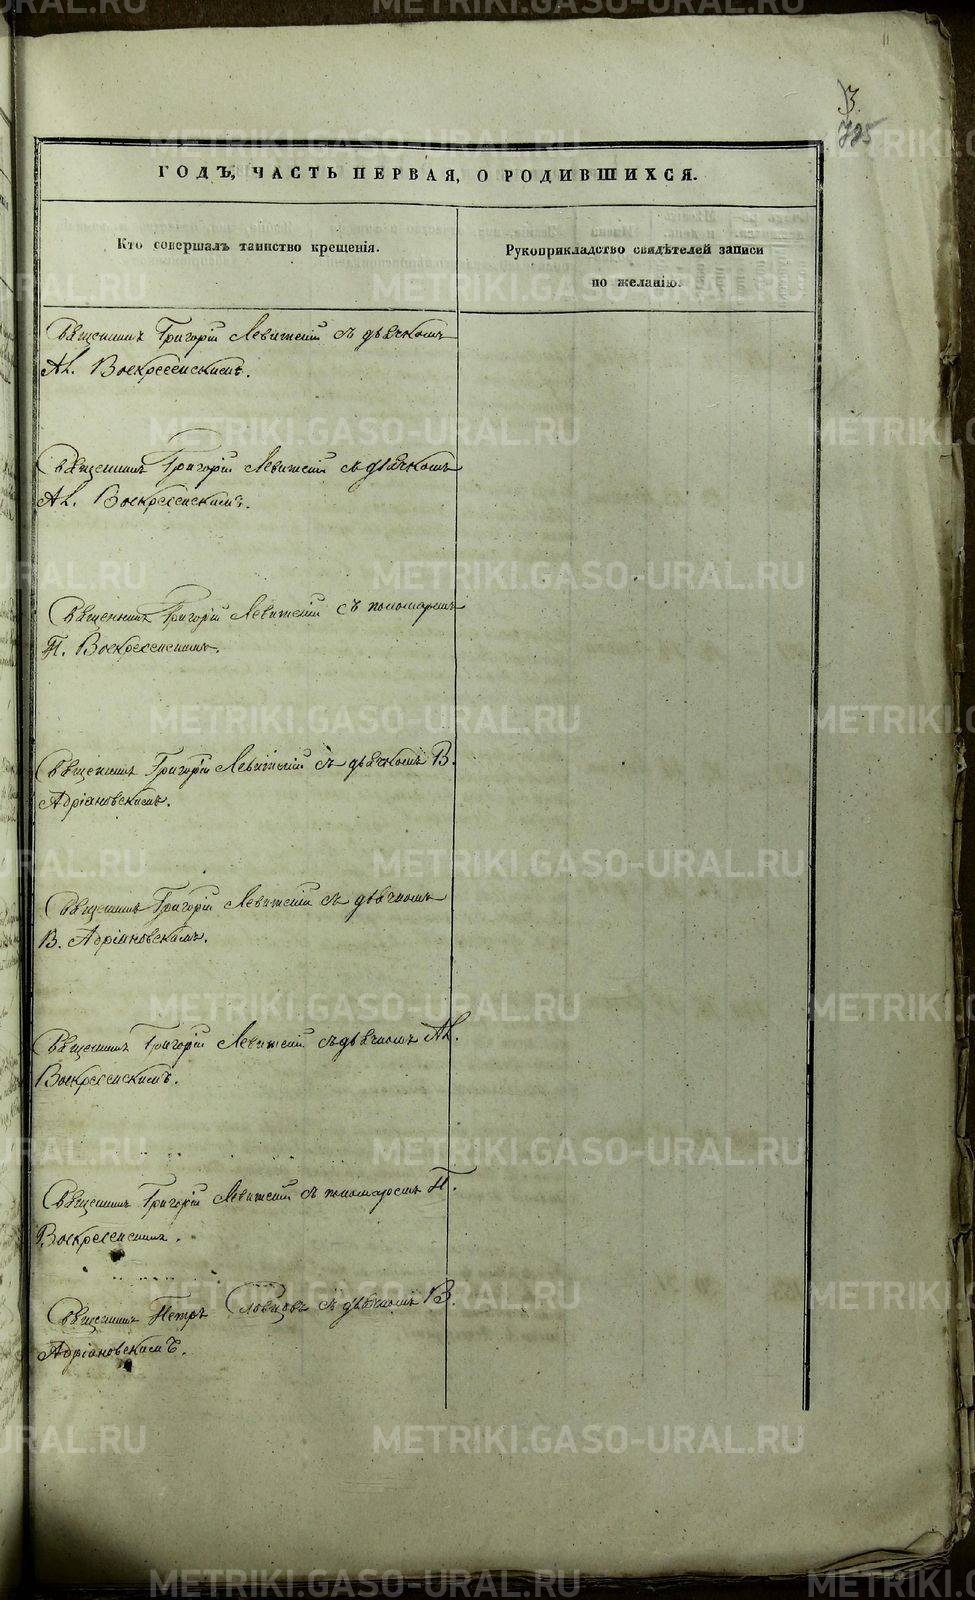 3.
795
ГОДЪ, ЧАСТЬ ПЕРВАЯ, О РОДИВШИХСЯ.
Кто совершалъ таинство крещенія.
Рукоприкладство свидѣтелей записи
по желанію.
Священникъ Григорій Левитскій съ дьячкомъ
Ал. Воскресенскимъ.
Священникъ Григорій Левитскій съ дьячкомъ
Ал. Воскресенскимъ.
Священникъ Григорій Левитскій съ пономаремъ
П. Воскресенскимъ.
Священникъ Григорій Левитскій съ дьячкомъ В.
Адріановскимъ.
Священникъ Григорій Левитскій съ дьячкомъ
В. Адріановскимъ.
Священникъ Григорій Левитскій съ дьячкомъ Ал.
Воскресенскимъ.
Священникъ Григорій Левитскій съ пономаремъ П.
Воскресенскимъ.
Священникъ Петръ Словцовъ съ дьячкомъ В.
Адріановскимъ.
METRIKI.GASO-URAL.RU